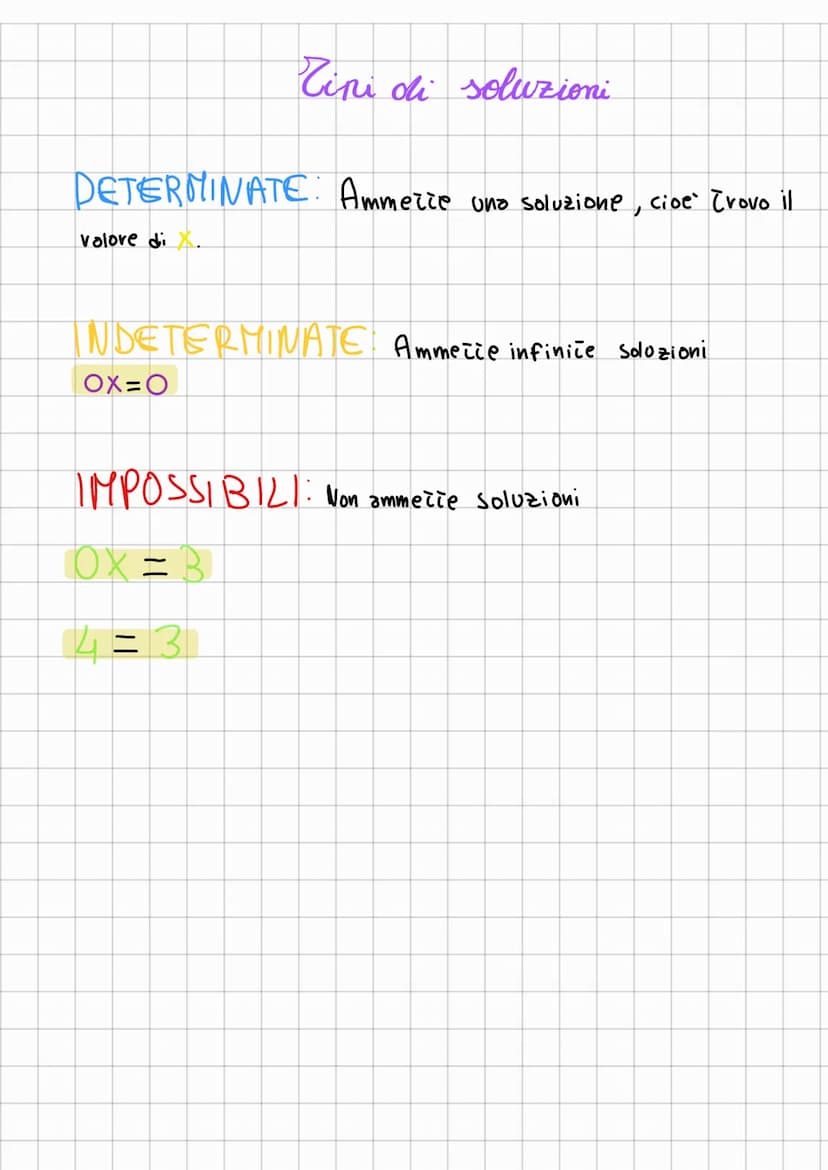 Tipi di soluzioni
DETERMINATE: Ammette una soluzione, cioè trovo il
valore di x.
INDETERMINATE: Ammette infinite soluzioni
0x=0
IMPOSSIBILI: Non ammette soluzioni
0x = 3
4 = 3